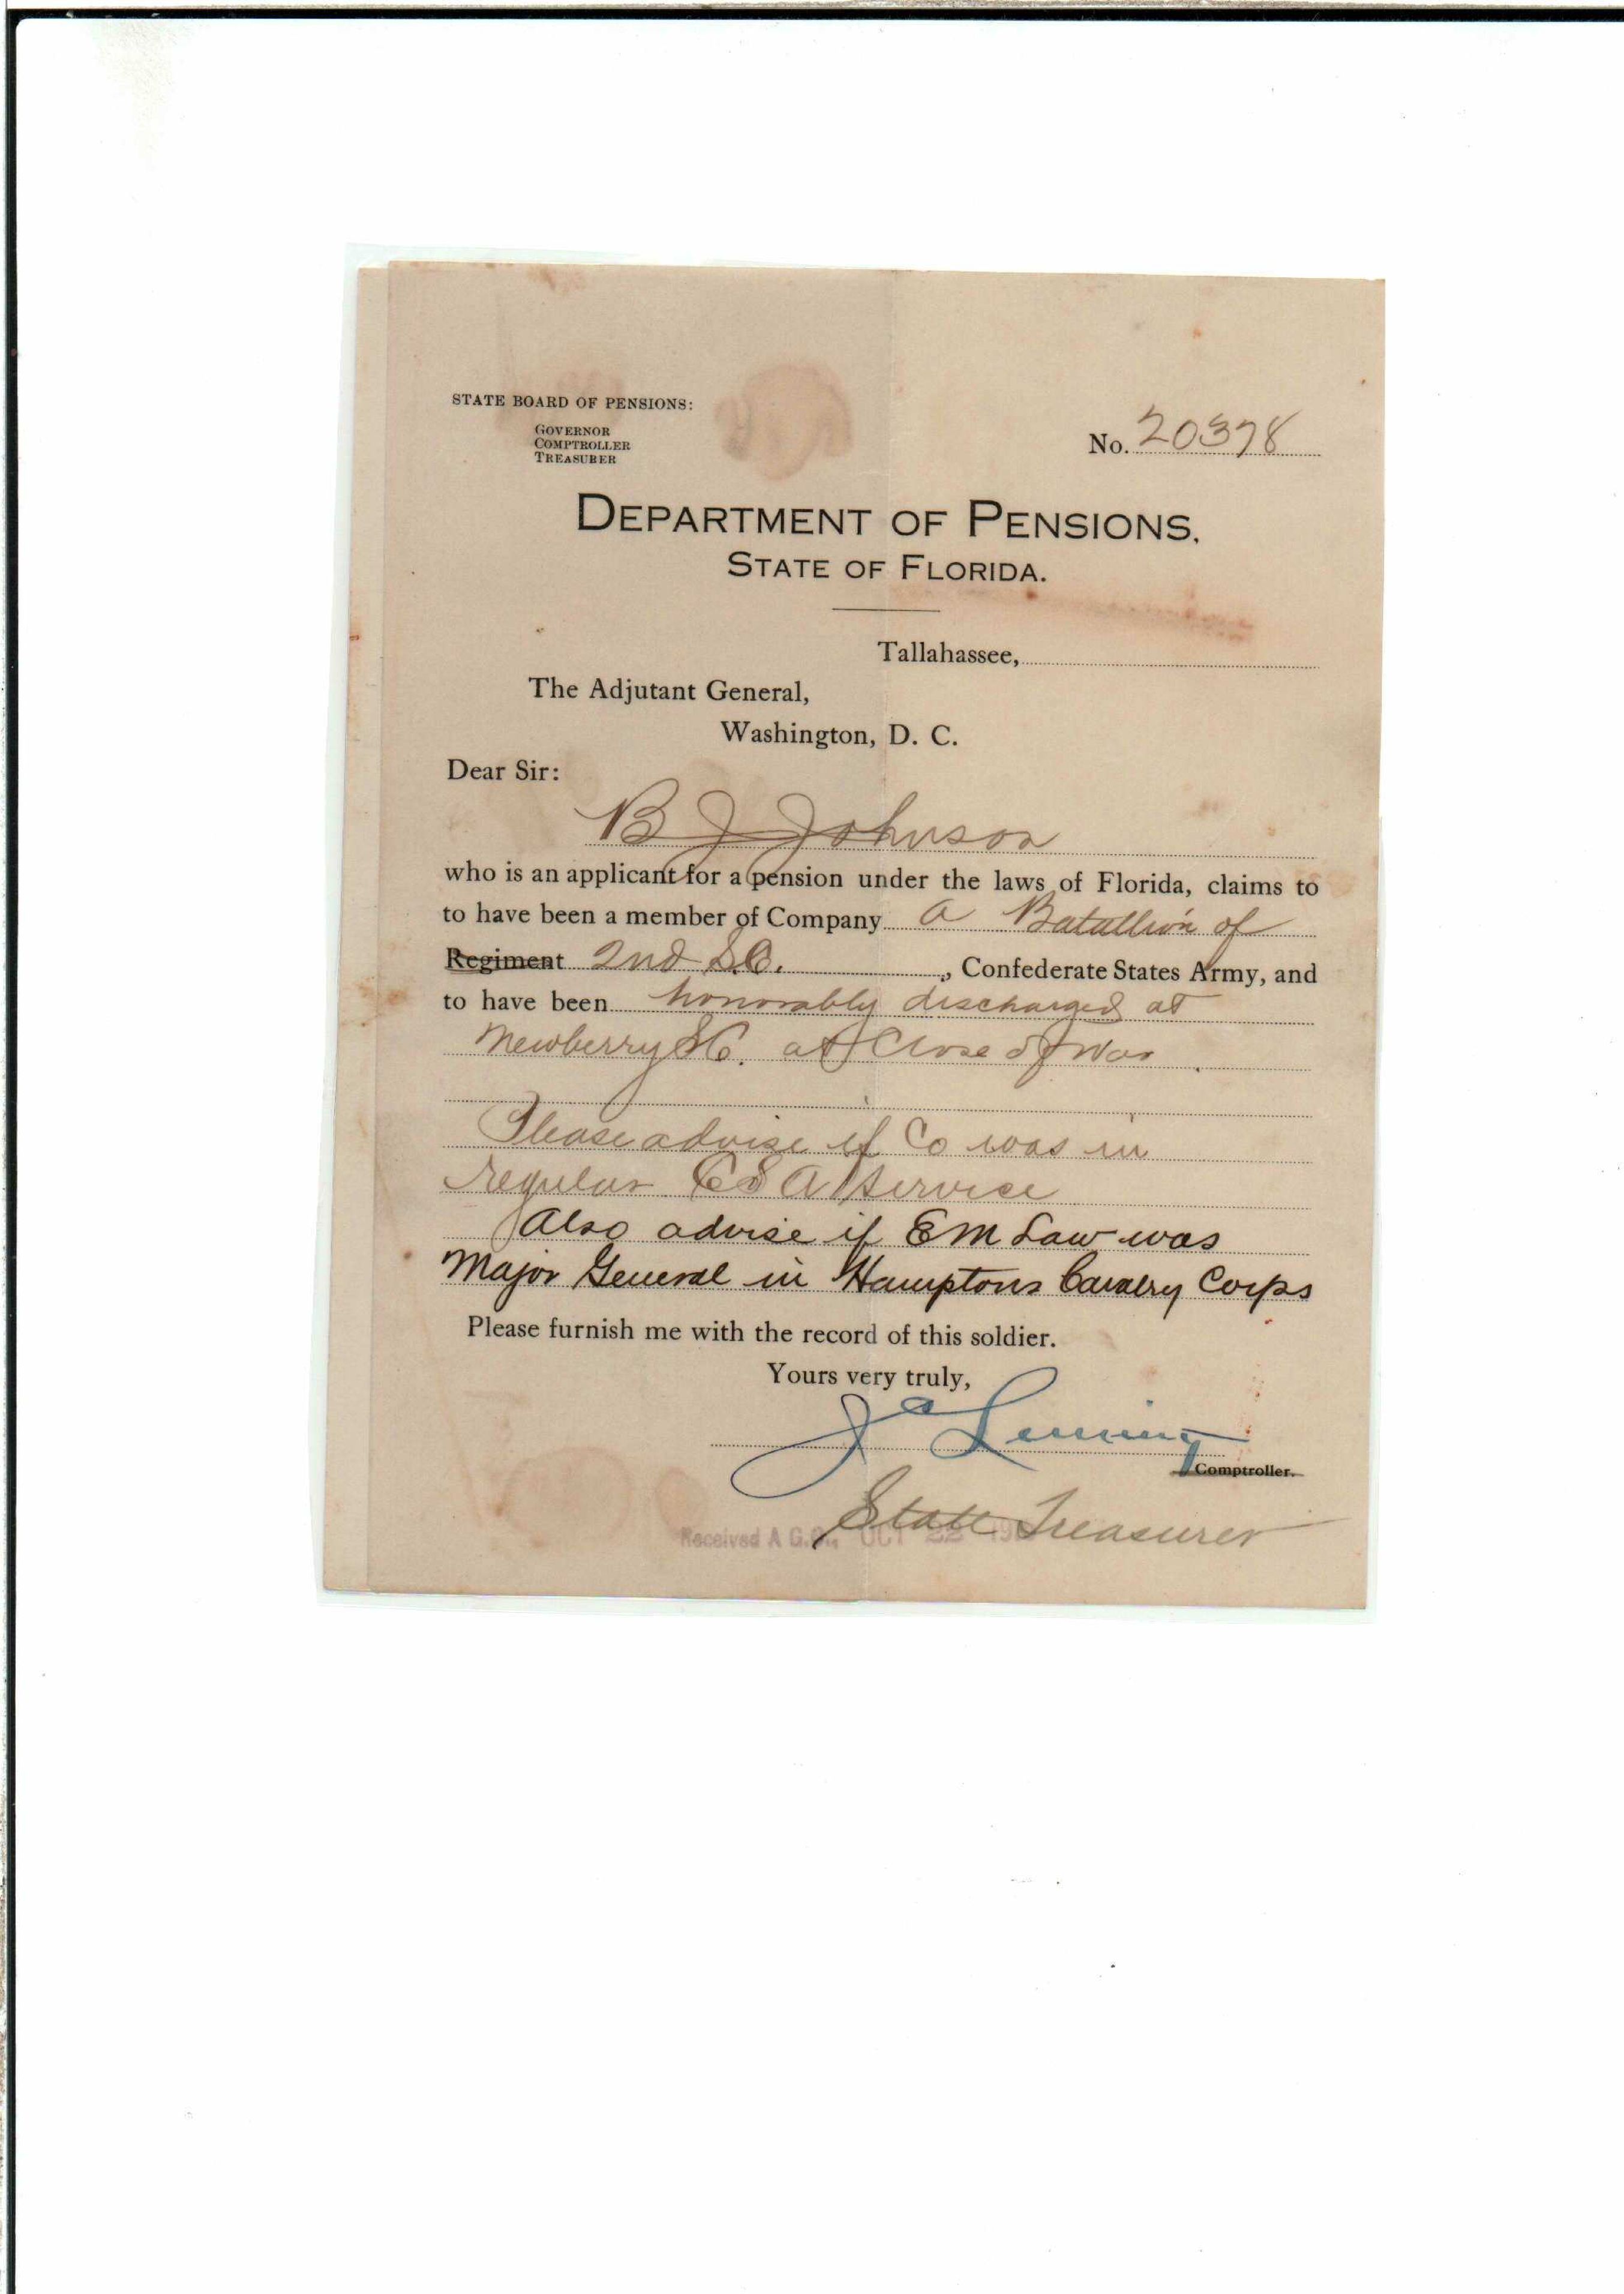 STATE BOARD OF PENSIONS:
GOVERNOR
COMPTROLLER
TREASURER
No. 20378
DEPARTMENT OF PENSIONS.
STATE OF FLORIDA.
Tallahassee,
The Adjutant General,
Washington, D. C.
Dear Sir:
B J Johnson
who is an applicant for a pension under the laws of Florida, claims to
to have been a member of Company a Batallion of
Regiment 2nd S.C. , Confederate States Army, and
to have been honorably discharged at
Newberry SC. at Close of War
Please advise if Co was in
regular C S A Service
Also advise if E M Law was
Major General in Hamptons Cavalry Corps
Please furnish me with the record of this soldier.
Yours very truly,
J a
Comptroller.
State Treasurer
Received A.G.O. OCT 22